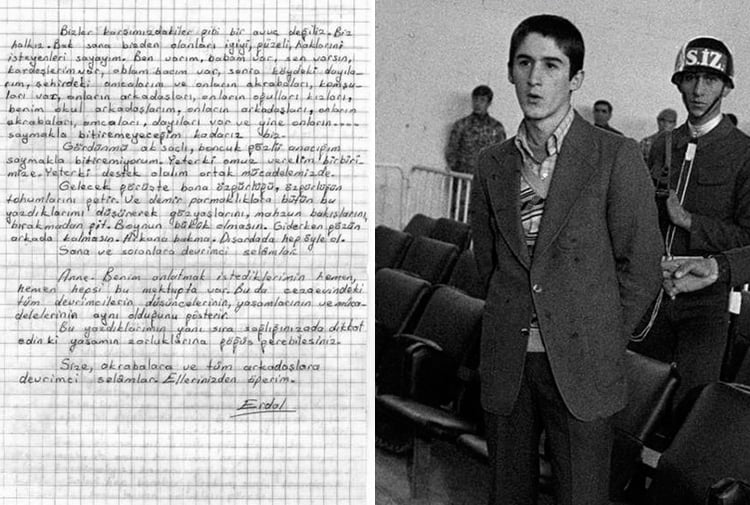 Bizler karşımızdakiler gibi bir avuç değiliz. Biz
halkız. Bak sana bizden olanları iyiyi, güzeli, haklarını
isteyenleri sayayım. Ben varım, babam var, sen varsın,
kardeşlerim var, ablam bacım var, sonra köydeki dayıla-
rım, şehirdeki amcalarım ve onların akrabaları, komşu-
ları var, onların arkadaşları, onların oğulları kızları,
benim okul arkadaşlarım, onların arkadaşları, onların
akrabaları, amcaları, dayıları var ve yine onların.....
saymakla bitiremeyeceğim kadarız biz.
Gördünmü ak saçlı, boncuk gözlü anacığım
saymakla bitiremiyorum. Yeterki omuz verelim birbiri-
mize. Yeterki destek olalım ortak mücadelemizde.
Gelecek görüşte bana özgürlüğü, özgürlüğün
tohumlarını getir. Ve demir parmaklıklara bütün bu
yazdıklarımı düşünerek gözyaşlarını, mahzun bakışlarını
bırakmadan git. Boynun bükük olmasın. Giderken gözün
arkada kalmasın. Arkana bakma. Dışardada hep öyle ol.
Sana ve soranlara devrimci selâmlar.
Anne. Benim anlatmak istediklerimin hemen,
hemen hepsi bu mektupta var. Bu da cezaevindeki
tüm devrimcilerin düşüncelerinin, yaşamlarının ve müca-
delelerinin aynı olduğunu gösterir.
Bu yazdıklarımın yanı sıra sağlığınızada dikkat
edin ki yaşamın zorluklarına göğüs gerebilesiniz.
Size, akrabalara ve tüm arkadaşlara
devrimci selâmlar. Ellerinizden öperim.
Erdal
S.İZ.